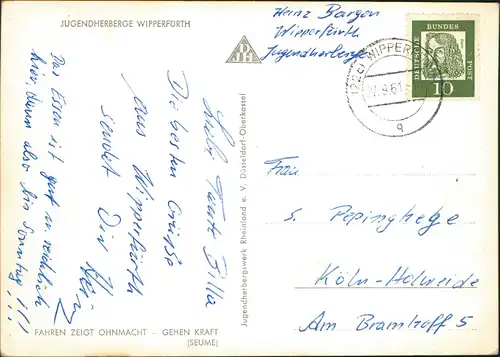 JUGENDHERBERGE WIPPERFÜRTH
Liebe Tante Billa
Die besten Grüsse
aus Wipperfürth
sendet Dir Heinz
Das Essen ist gut u. reichlich
hier, dann also bis Sonntag!!!
FAHREN ZEIGT OHNMACHT – GEHEN KRAFT
(SEUME)
DJH
Jugendherbergswerk Rheinland e. V. Düsseldorf-Oberkassel
Heinz Bergen
Wipperfürth
Jugendherberge
DEUTSCHE BUNDESPOST
10
WIPPERF
9.61
a
Frau
S. Pepinghege
Köln-Holweide
Am Bramhoff 5